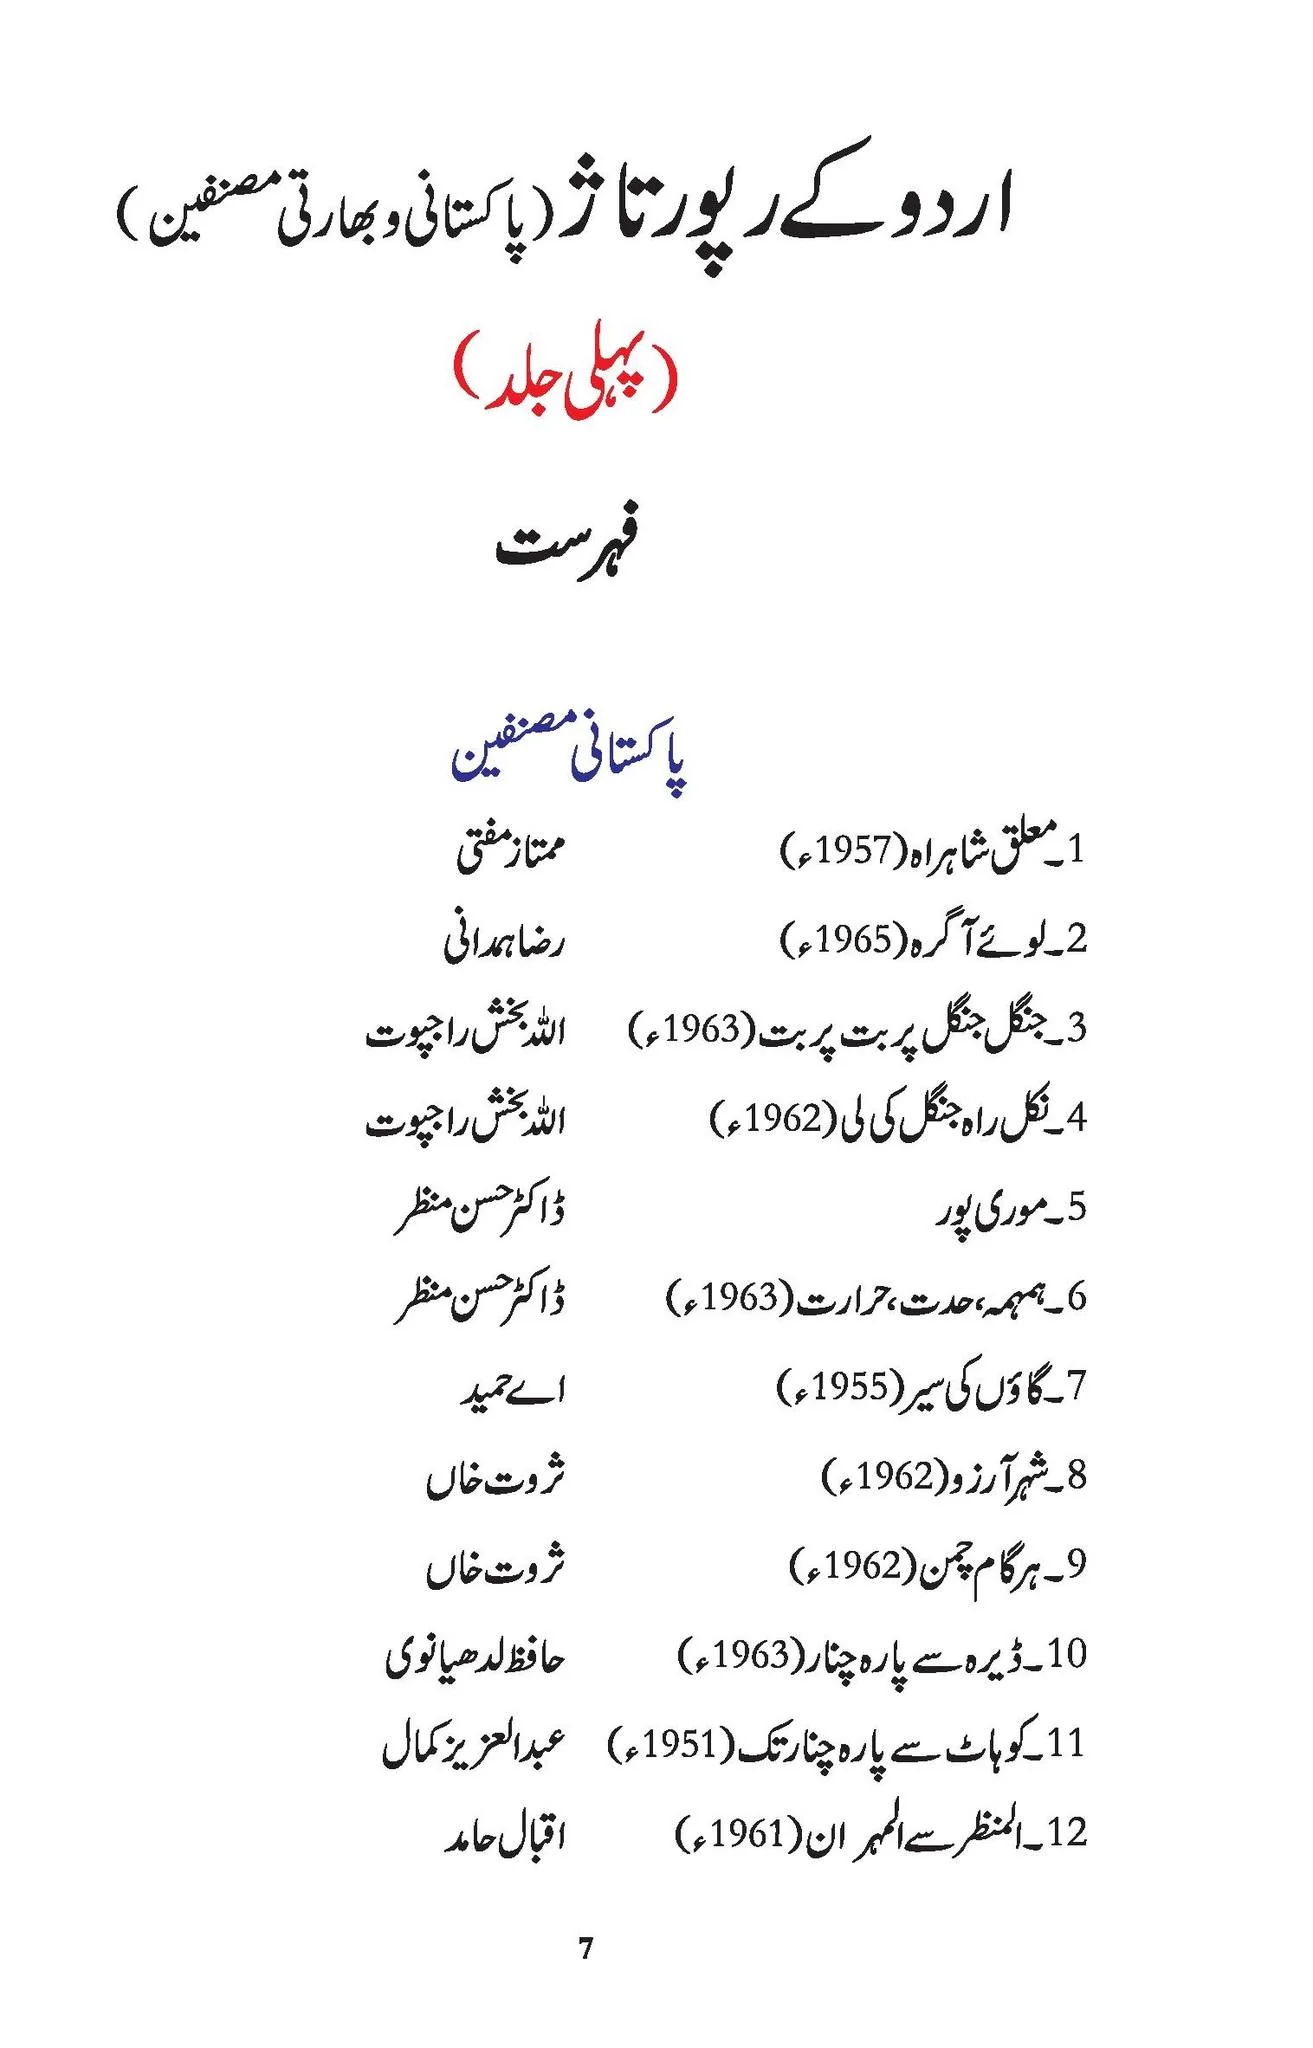 اردو کے رپورتاژ (پاکستانی و بھارتی مصنفین)
(پہلی جلد)
فہرست
پاکستانی مصنفین
1۔معلق شاہراہ (1957ء) ممتاز مفتی
2۔لوئے آگرہ (1965ء) رضا ہمدانی
3۔جنگل جنگل پربت پربت (1963ء) اللہ بخش راجپوت
4۔نکل راہ جنگل کی لی (1962ء) اللہ بخش راجپوت
5۔موری پور ڈاکٹر حسن منظر
6۔ہمہمہ، حدت، حرارت (1963ء) ڈاکٹر حسن منظر
7۔گاؤں کی سیر (1955ء) اے حمید
8۔شہرِ آرزو (1962ء) ثروت خاں
9۔ہر گام چمن (1962ء) ثروت خاں
10۔ڈیرہ سے پارہ چنار (1963ء) حافظ لدھیانوی
11۔کوہاٹ سے پارہ چنار تک (1951ء) عبدالعزیز کمال
12۔المنظر سے المہران (1961ء) اقبال حامد
7